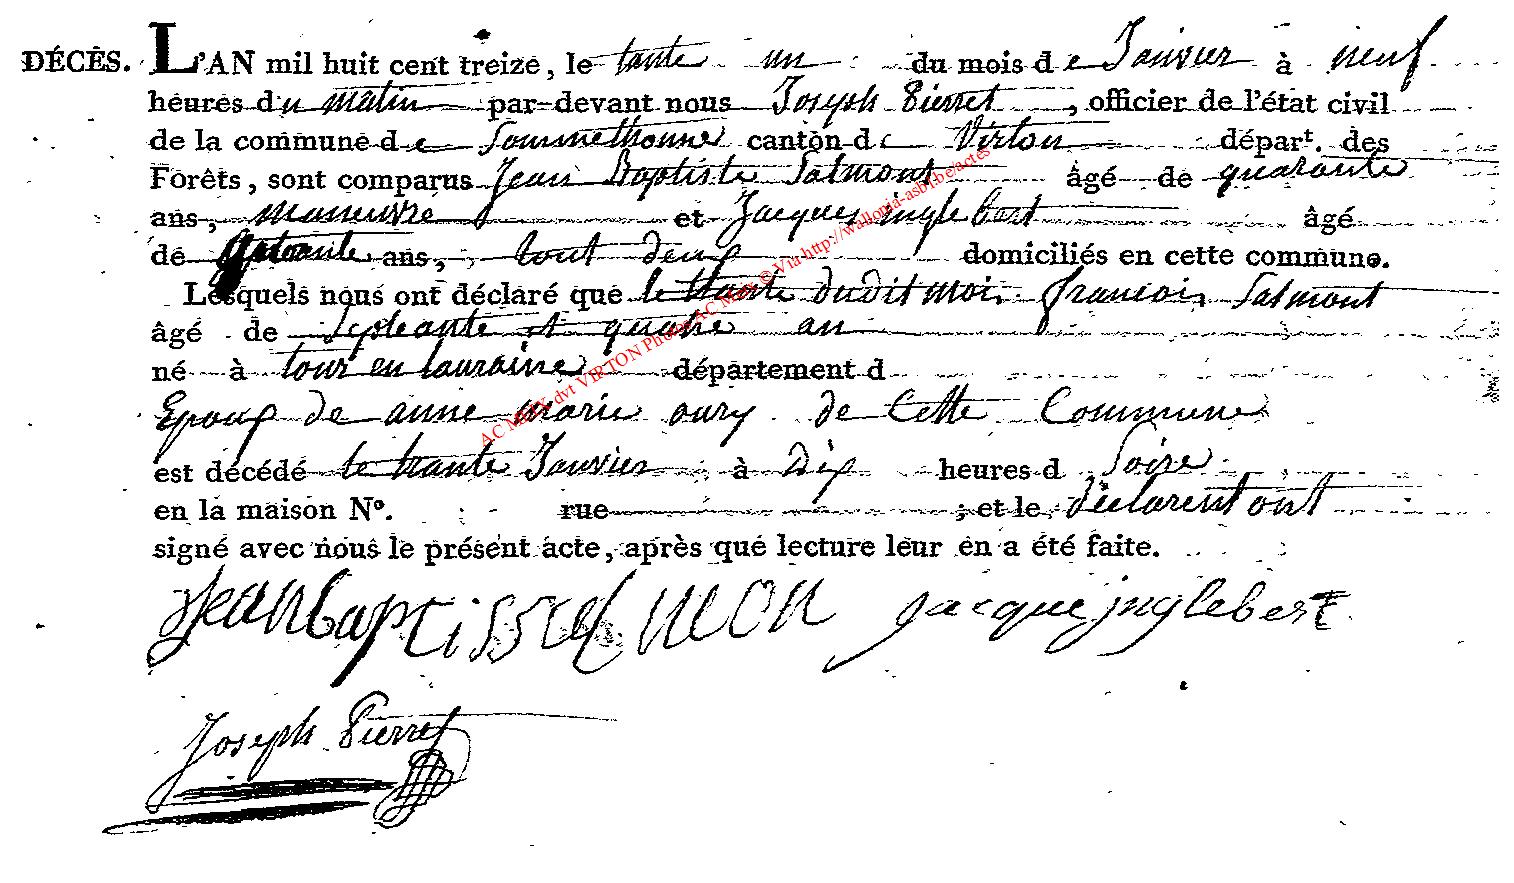 DÉCÈS. L'AN mil huit cent treize, le tante un du mois de Janvier à neuf
heures du matin par-devant nous Joseph Pierret, officier de l'état civil
de la commune de Sommethonne canton de Virton départ. des
Forêts, sont comparus Jean Baptiste Salmont âgé de quarante
ans, maneuvre et Jacques inglebert âgé
de ans, tout deux domiciliés en cette commune.
Lesquels nous ont déclaré que le trante dudit mois francois Salmont
âgé de Septeante et quatre an
né à tour en lauraine département d
Epoux de anne marie oury de Cette Commune
est décédé le trante Janvier à Dix heures d Soire
en la maison N°. rue ; et le déclarent ont
signé avec nous le présent acte, après que lecture leur en a été faite.
Jean baptiss salmon Jacque jnglebert
Joseph Pierret
AC MEIX dvt VIRTON Photo AC Meix © Via http://wallonia-asbl.be/actes